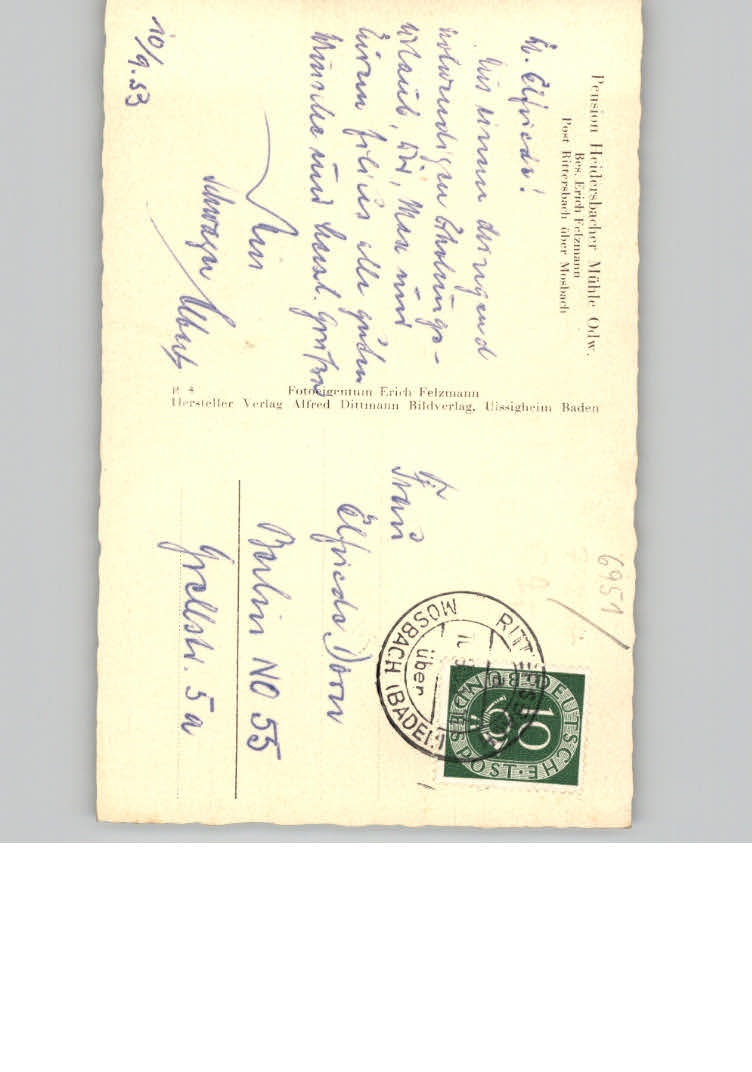 Pension Heidersbacher Mühle Odw.
Bes. Erich Felzmann
Post Rittersbach über Mosbach
Lb. Elfriede!
Aus einem dringend
notwendigen Erholungs-
urlaub, Dir, Max und
Eurem filius alle guten
Wünsche und herzl. Grüße
Dein
Schwager
10/9.53
P. 4
Fotoeigentum Erich Felzmann
Hersteller Verlag Alfred Dittmann Bildverlag, Uissigheim Baden
Frau
Elfriede Dorn
Berlin NO 55
Grellstr. 5a
6951
RITTERSBACH
über
MOSBACH (BADEN)
DEUTSCHE BUNDESPOST
10